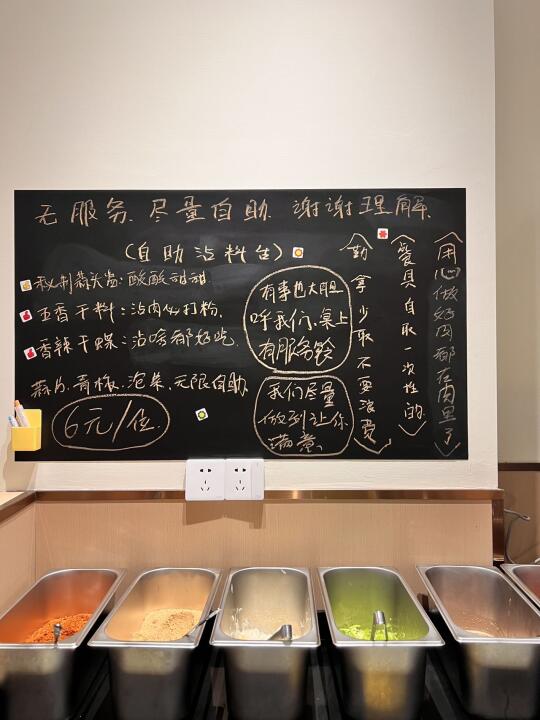 无服务.尽量自助.谢谢理解.
(自助沾料台)
秘制蒜头酱:酸酸甜甜
五香干料:沾肉必打粉.
香辣干蝶:沾啥都好吃.
蒜片.青椒.泡菜.无限自助.
6元/位.
有事也大胆
呼我们.桌上
有服务铃
我们尽量
做到让你
满意.
(勤拿少取不要浪费)
(餐具自取一次性的.)
(用心做好肉都在肉里了)